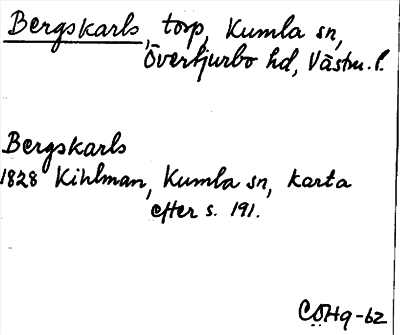 Bergskarls, torp, Kumla sn,
Övertjurbo hd, Västm. l.
Bergskarls
1828 Kihlman, Kumla sn, karta
efter s. 191.
CÖHg-62